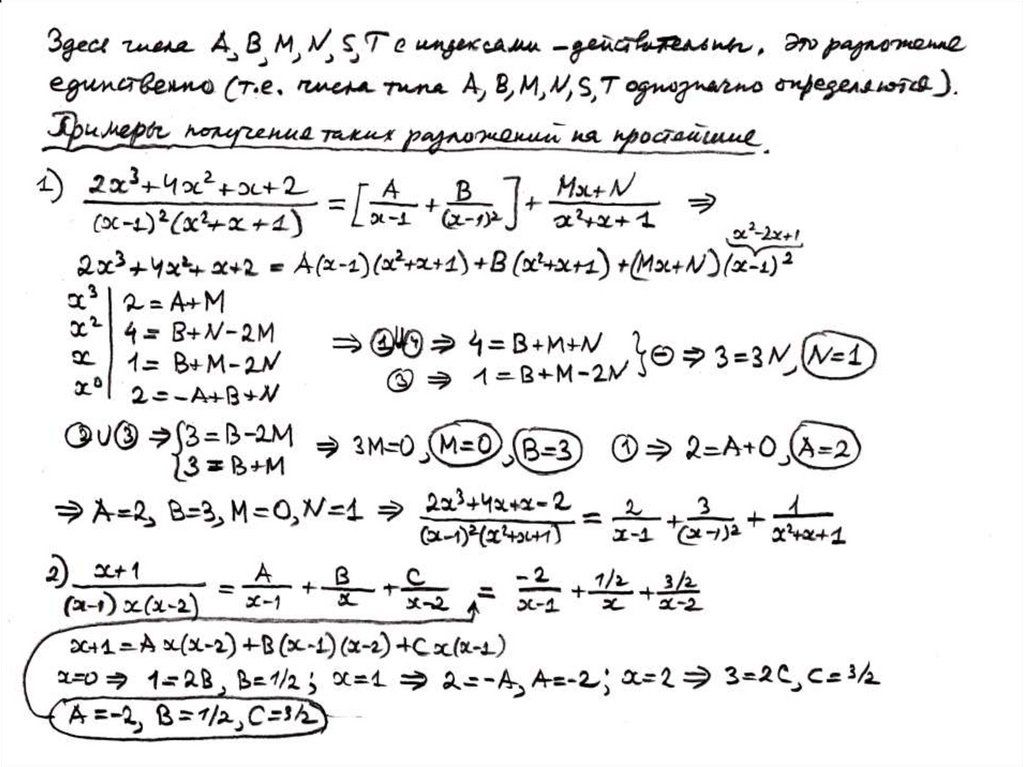 Здесь числа A, B, M, N, S, T с индексами – действительны. Это разложение
единственно (т.е. числа типа A, B, M, N, S, T однозначно определяются).
Примеры получение таких разложений на простейшие.
1) (2x³+4x²+x+2)/((x-1)²(x²+x+1)) = [A/(x-1) + B/(x-1)²] + (Mx+N)/(x²+x+1) ⇒
x²-2x+1
2x³+4x²+x+2 = A(x-1)(x²+x+1)+B(x²+x+1)+(Mx+N)(x-1)²
x³ | 2=A+M
x² | 4=B+N-2M
x | 1=B+M-2N
x⁰ | 2=-A+B+N
⇒ ①U④ ⇒ 4=B+M+N
③ ⇒ 1=B+M-2N } ⊖ ⇒ 3=3N, N=1
②U③ ⇒ { 3=B-2M
{ 3=B+M
⇒ 3M=0, M=0, B=3 ① ⇒ 2=A+0, A=2
⇒ A=2, B=3, M=0, N=1 ⇒ (2x³+4x+x-2)/((x-1)²(x²+x+1)) = 2/(x-1) + 3/(x-1)² + 1/(x²+x+1)
2) (x+1)/((x-1)x(x-2)) = A/(x-1) + B/x + C/(x-2) = -2/(x-1) + (1/2)/x + (3/2)/(x-2)
x+1=Ax(x-2)+B(x-1)(x-2)+Cx(x-1)
x=0 ⇒ 1=2B, B=1/2; x=1 ⇒ 2=-A, A=-2; x=2 ⇒ 3=2C, C=3/2
A=-2, B=1/2, C=3/2